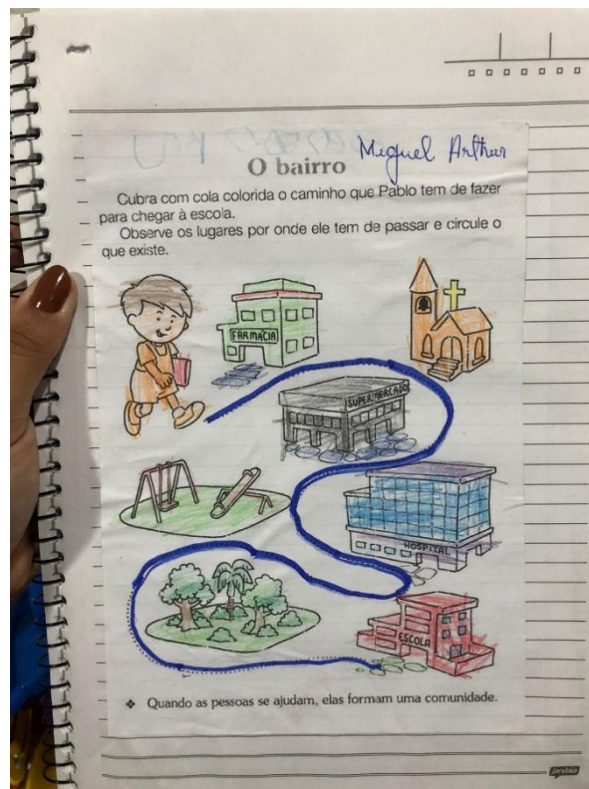 Miguel Arthur
O bairro
Cubra com cola colorida o caminho que Pablo tem de fazer
para chegar à escola.
Observe os lugares por onde ele tem de passar e circule o
que existe.
FARMÁCIA
SUPERMERCADO
HOSPITAL
ESCOLA
❖ Quando as pessoas se ajudam, elas formam uma comunidade.
jandaia